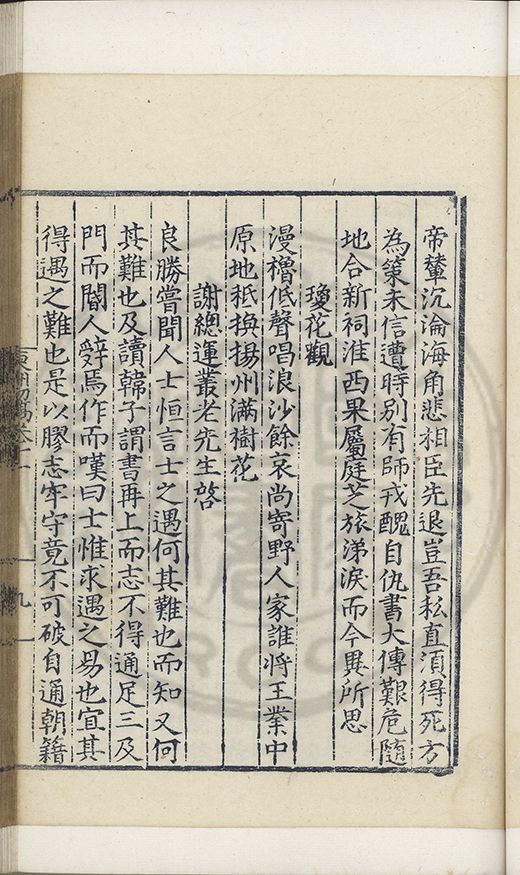 帝輦沉淪海角悲相臣先退豈吾私直須得死方
為策未信遭時別有師戎醜自仇書大傳艱危隨
地合新祠淮西果屬庭芝旅涕淚而今異所思
瓊花觀
漫櫓低聲唱浪沙餘哀尚寄野人家誰將王業中
原地秪換揚州滿樹花
謝總運叢老先生啓
良勝嘗聞人士恒言士之遇何其難也而知又何
其難也及讀韓子謂書再上而志不得通足三及
門而閽人辭焉作而嘆曰士惟求遇之易也宜其
得遇之難也是以膠志牢守竟不可破自通朝籍